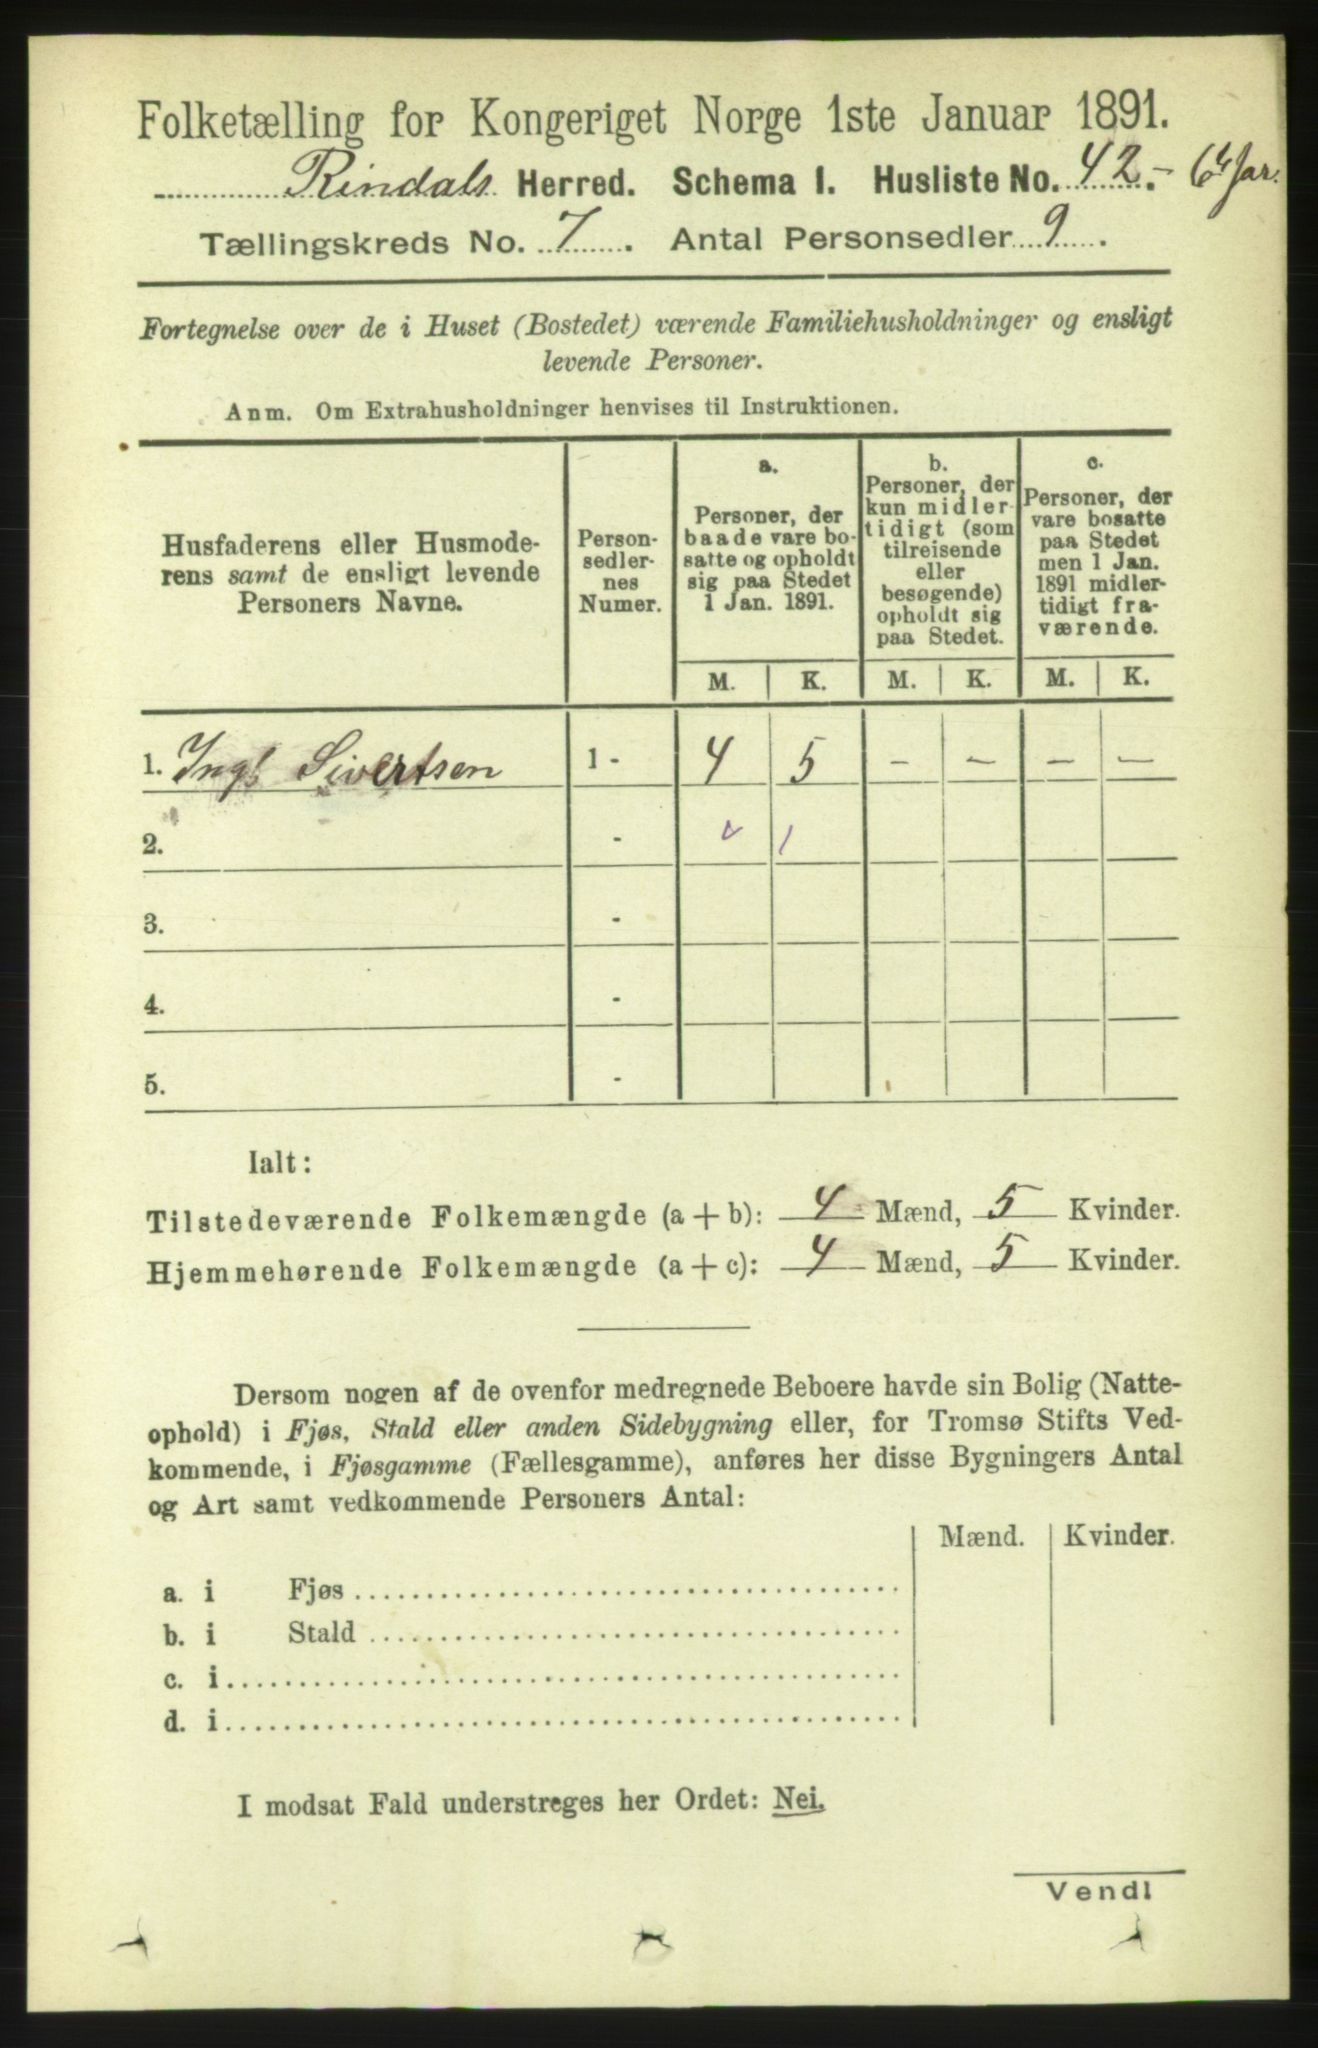 Folketælling for Kongeriget Norge 1ste Januar 1891.
Rindals Herred. Schema I. Husliste No. 42.-
Tællingskreds No. 7. Antal Personsedler 9.
Fortegnelse over de i Huset (Bostedet) værende Familiehusholdninger og ensligt
levende Personer.
Anm. Om Extrahusholdninger henvises til Instruktionen.
Husfaderens eller Husmode-
rens samt de ensligt levende
Personers Navne.
Person-
sedler-
nes
Numer.
a.
Personer, der
baade vare bo-
satte og opholdt
sig paa Stedet
1 Jan. 1891.
b.
Personer, der
kun midler-
tidigt (som
tilreisende
eller
besøgende)
opholdt sig
paa Stedet.
c.
Personer, der
vare bosatte
paa Stedet
men 1 Jan.
1891 midler-
tidigt fra-
værende.
M. K. M. K. M. K.
1. Sivertsen 1 - 4 5 - - - -
2. - 1
3. -
4. -
5. -
Ialt:
Tilstedeværende Folkemængde (a + b): 4 Mænd, 5 Kvinder.
Hjemmehørende Folkemængde (a + c): 4 Mænd, 5 Kvinder.
Dersom nogen af de ovenfor medregnede Beboere havde sin Bolig (Natte-
ophold) i Fjøs, Stald eller anden Sidebygning eller, for Tromsø Stifts Ved-
kommende, i Fjøsgamme (Fællesgamme), anføres her disse Bygningers Antal
og Art samt vedkommende Personers Antal:
Mænd. Kvinder.
a. i Fjøs
b. i Stald
c. i
d. i
I modsat Fald understreges her Ordet: Nei.
Vend!